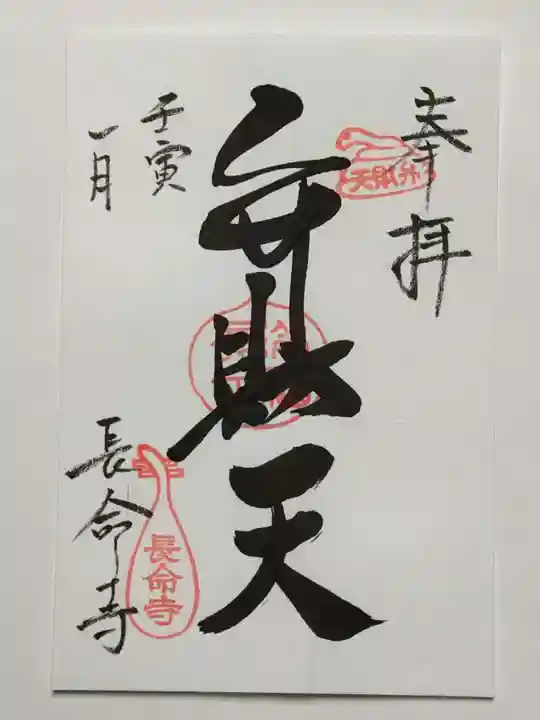 奉拝
天財弁
弁財天
壬寅
一月
長命寺
長命寺